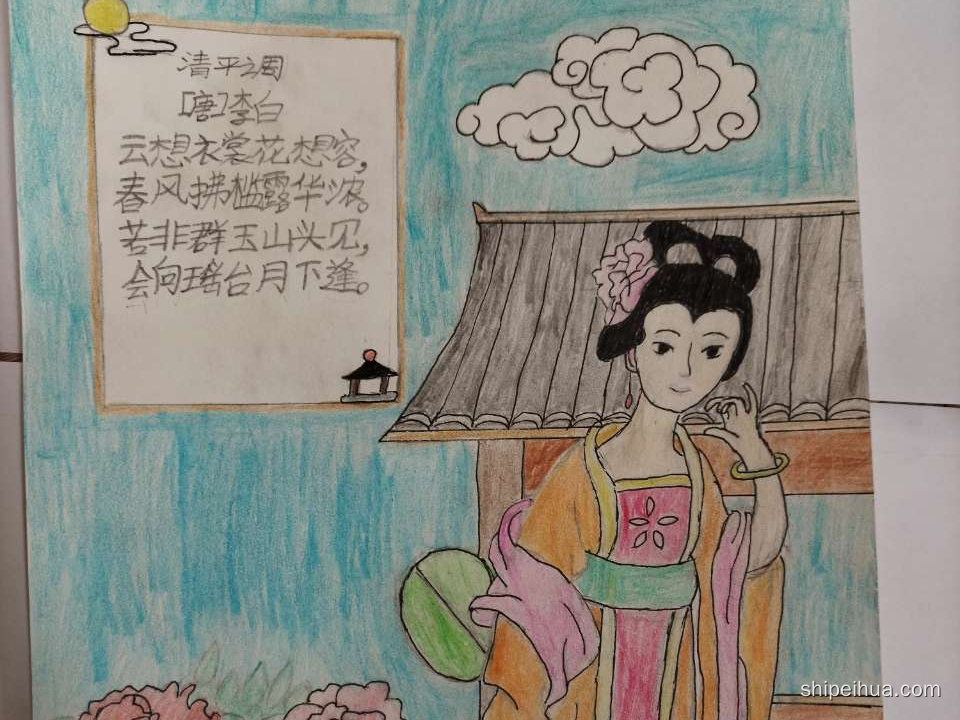 清平调
[唐]李白
云想衣裳花想容，
春风拂槛露华浓。
若非群玉山头见，
会向瑶台月下逢。
shipeihua.com